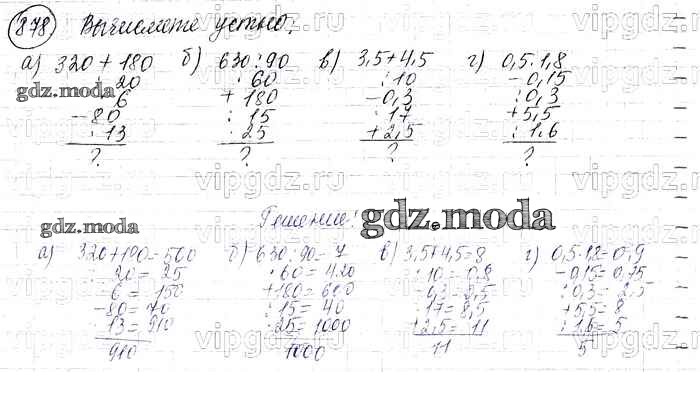 878 Вычислите устно.
а) 320 + 180 б) 630 : 90 в) 3,5 + 4,5 г) 0,5 · 1,8
: 20 · 60 : 10 - 0,15
· 6 + 180 - 0,3 : 0,3
- 80 : 15 · 17 + 5,5
· 13 · 25 + 2,5 : 1,6
? ? ? ?
Решение:
а) 320 + 180 = 500 б) 630 : 90 = 7 в) 3,5 + 4,5 = 8 г) 0,5 · 1,8 = 0,9
: 20 = 25 · 60 = 420 : 10 = 0,8 - 0,15 = 0,75
· 6 = 150 + 180 = 600 - 0,3 = 0,5 : 0,3 = 2,5
- 80 = 70 : 15 = 40 · 17 = 8,5 + 5,5 = 8
· 13 = 910 · 25 = 1000 + 2,5 = 11 : 1,6 = 5
910 1000 11 5
gdz.moda
gdz.moda
gdz.moda
vipgdz.ru